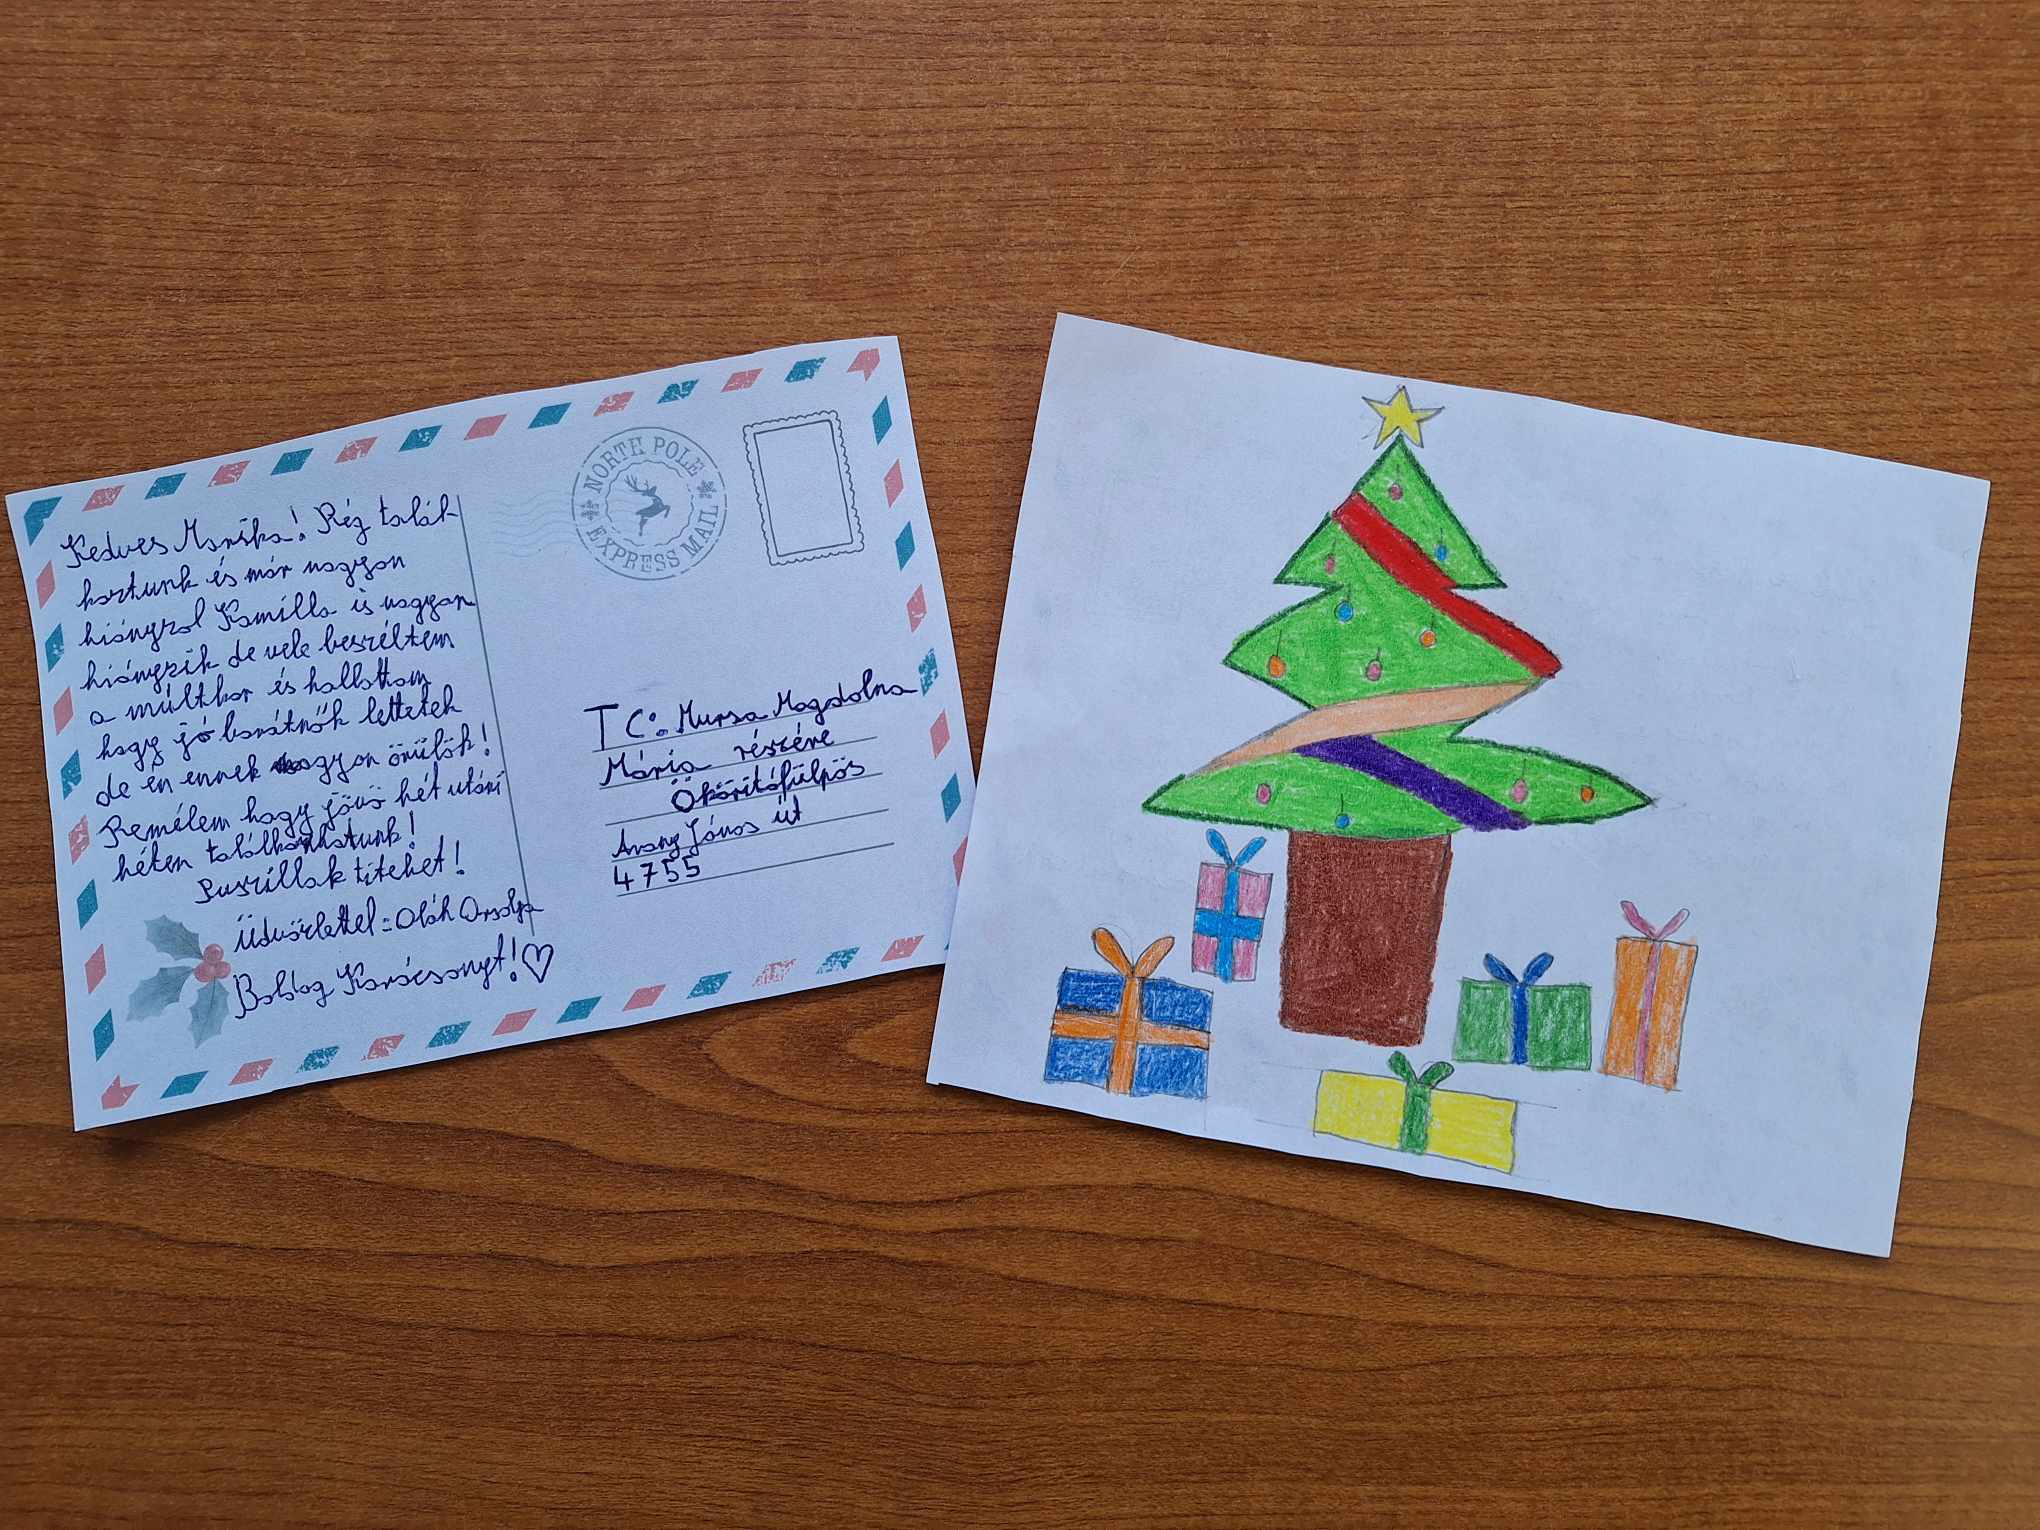 Kedves Marika! Rég talák
hortunk és már nagyon
hiányzol Kamilla is nagyon
hiányzik de vele beszéltem
a múltkor és hallottam
hogy jó barátnők lettetek
de én ennek nagyon örülök!
Remélem hogy jövő hét utáni
héten találkozhatunk!
Puszillak titeket!
Üdvözlettel: Oláh Orsolya
Boldog Karácsonyt!♡
NORTH POLE
EXPRESS MAIL
TC: Mursa Magdolna
Mária részére
Ököritófülpös
Arany János út
4755